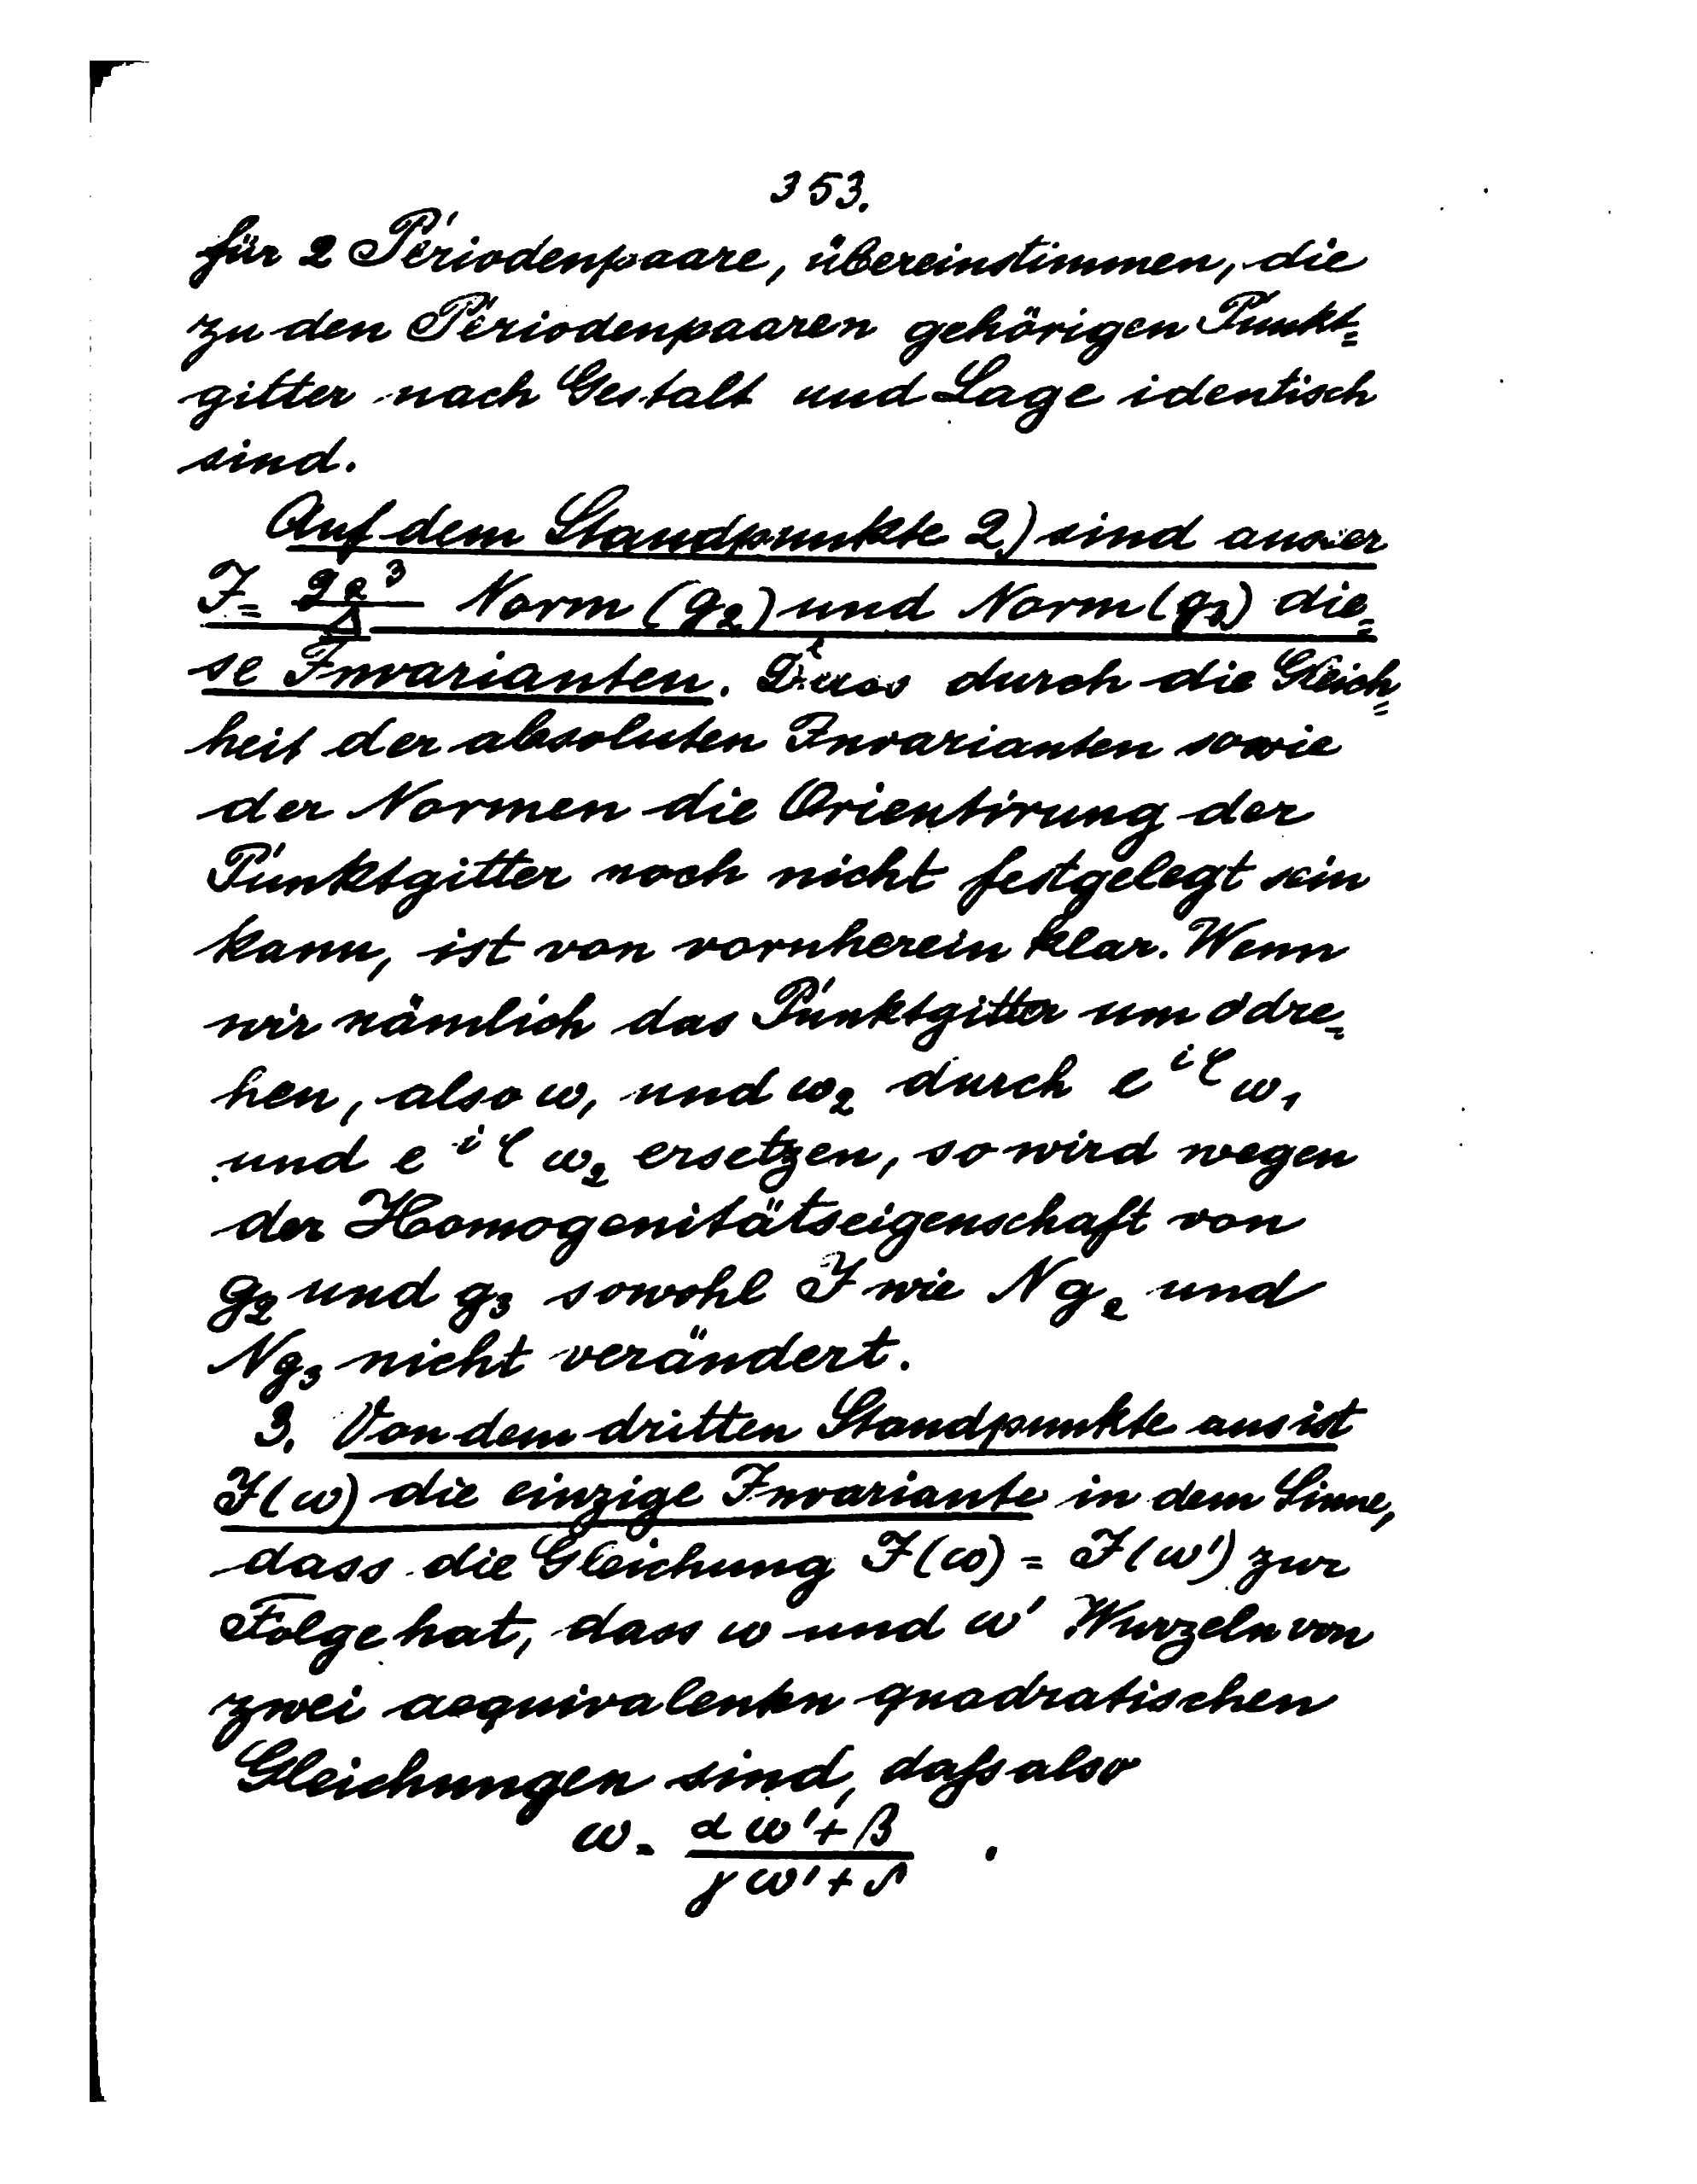 353.
für 2 Periodenpaare, übereinstimmen, die
zu den Periodenpaaren gehörigen Punkt=
gitter nach Gestalt und Lage identisch
sind.
Auf dem Standpunkte 2) sind ausser
J = g₂³/Δ Norm (g₂) und Norm (g₃) die=
se Invarianten. Dass durch die Gleich=
heit der absoluten Invarianten sowie
der Normen die Orientirung der
Punktgitter noch nicht festgelegt sein
kann, ist von vornherein klar. Wenn
wir nämlich das Punktgitter um 0 dre=
hen, also ω₁ und ω₂ durch e^{iφ} ω₁
und e^{iφ} ω₂ ersetzen, so wird wegen
der Homogenitätseigenschaft von
g₂ und g₃ sowohl J wie Ng₂ und
Ng₃ nicht verändert.
3. Von dem dritten Standpunkte aus ist
J(ω) die einzige Invariante in dem Sinne,
dass die Gleichung J(ω) = J(ω') zur
Folge hat, dass ω und ω' Wurzeln von
zwei aequivalenten quadratischen
Gleichungen sind, daſs also
ω = (αω' + β)/(γω' + δ) .